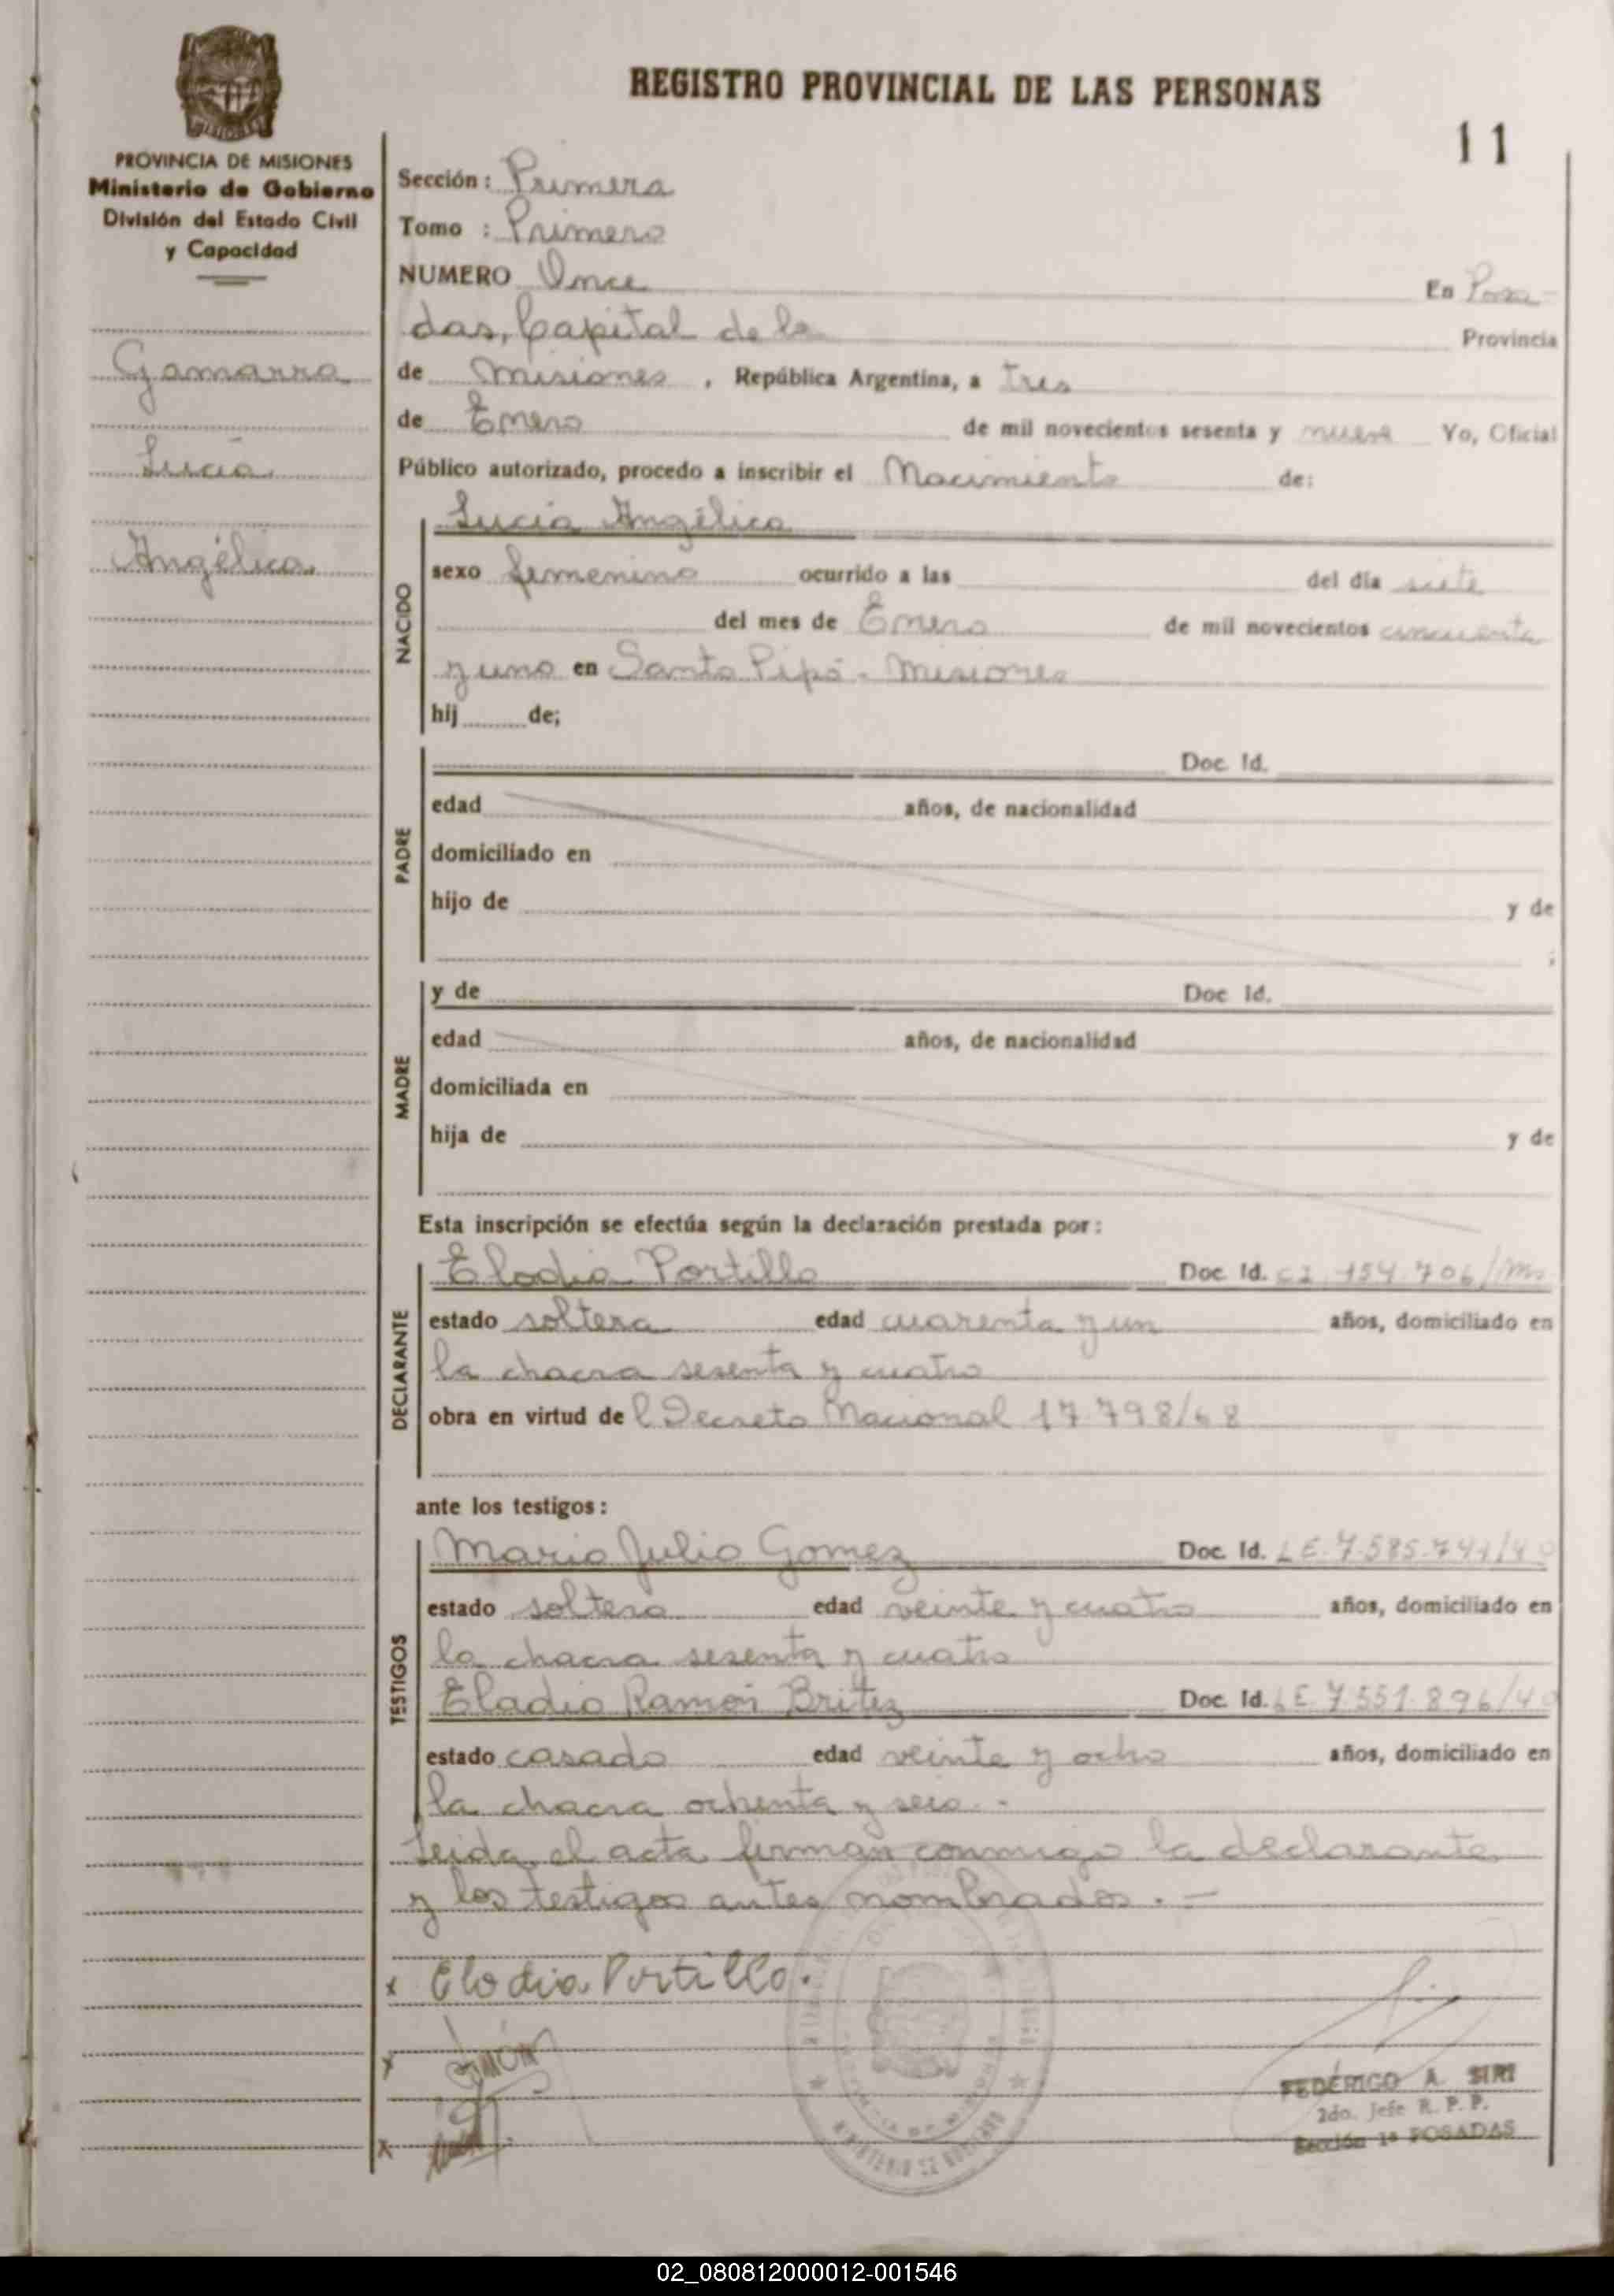 REGISTRO PROVINCIAL DE LAS PERSONAS
11
PROVINCIA DE MISIONES
Ministerio de Gobierno
División del Estado Civil
y Capacidad
Gamarra
Lucía
Angélica
Sección: Primera
Tomo : Primero
NUMERO Once En Posa-
das, Capital de la Provincia
de Misiones, República Argentina, a tres
de Enero de mil novecientos sesenta y nueve Yo, Oficial
Público autorizado, procedo a inscribir el Nacimiento de:
NACIDO
Lucía Angélica
sexo femenino ocurrido a las del día siete
del mes de Enero de mil novecientos cincuenta
y uno en Santo Pipó - Misiones
hij de;
PADRE
Doc. Id.
edad años, de nacionalidad
domiciliado en
hijo de y de
;
MADRE
y de Doc Id.
edad años, de nacionalidad
domiciliada en
hija de y de
Esta inscripción se efectúa según la declaración prestada por:
DECLARANTE
Elodia Portillo Doc. Id. CI 154.706/Ms
estado soltera edad cuarenta y un años, domiciliado en
la chacra sesenta y cuatro
obra en virtud de l Decreto Nacional 17.798/68
ante los testigos:
TESTIGOS
Mario Julio Gomez Doc. Id. LE
estado soltero edad veinte y cuatro años, domiciliado en
la chacra sesenta y cuatro
Eladio Ramón Britez Doc. Id. LE 7.551.896/40
estado casado edad veinte y ocho años, domiciliado en
la chacra ochenta y seis.-
Leida el acta firman conmigo la declarante
y los testigos antes nombrados.-
x Elodia Portillo.
x
x
FEDERICO A. SIRI
2do. Jefe R. P. P.
Sección 1ª POSADAS
MINISTERIO DE GOBIERNO
02_080812000012-001546